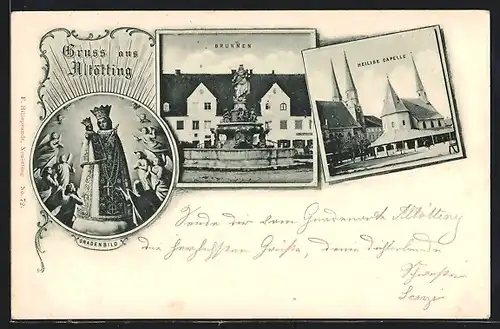 Gruss aus
Altötting
BRUNNEN
HEILIGE CAPELLE
GNADENBILD
F. Hiligrandt, Neuötting No. 72.
Sende dir vom Gnadenorte Altötting
die herzlichsten Grüße, deine dichliebende
Schwester
Senzi